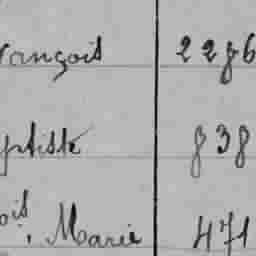 rançois 2286
ptiste 838
ois, Marie 471